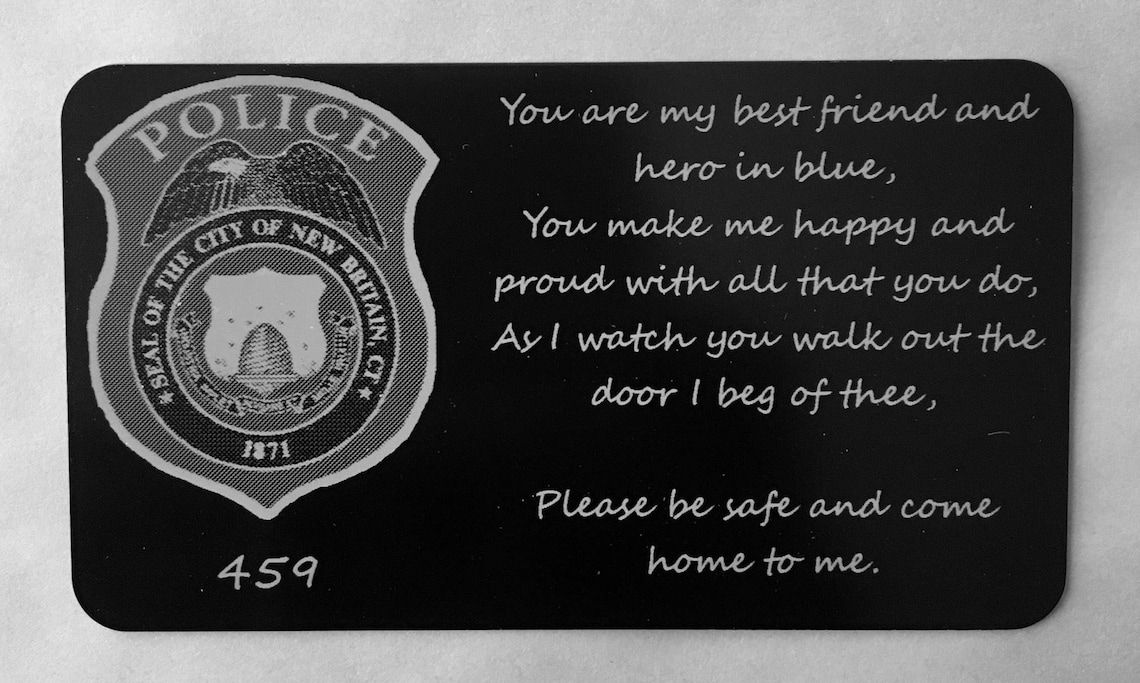 POLICE
SEAL OF THE CITY OF NEW BRITAIN, CT
1871
459
You are my best friend and
hero in blue,
You make me happy and
proud with all that you do,
As I watch you walk out the
door I beg of thee,
Please be safe and come
home to me.